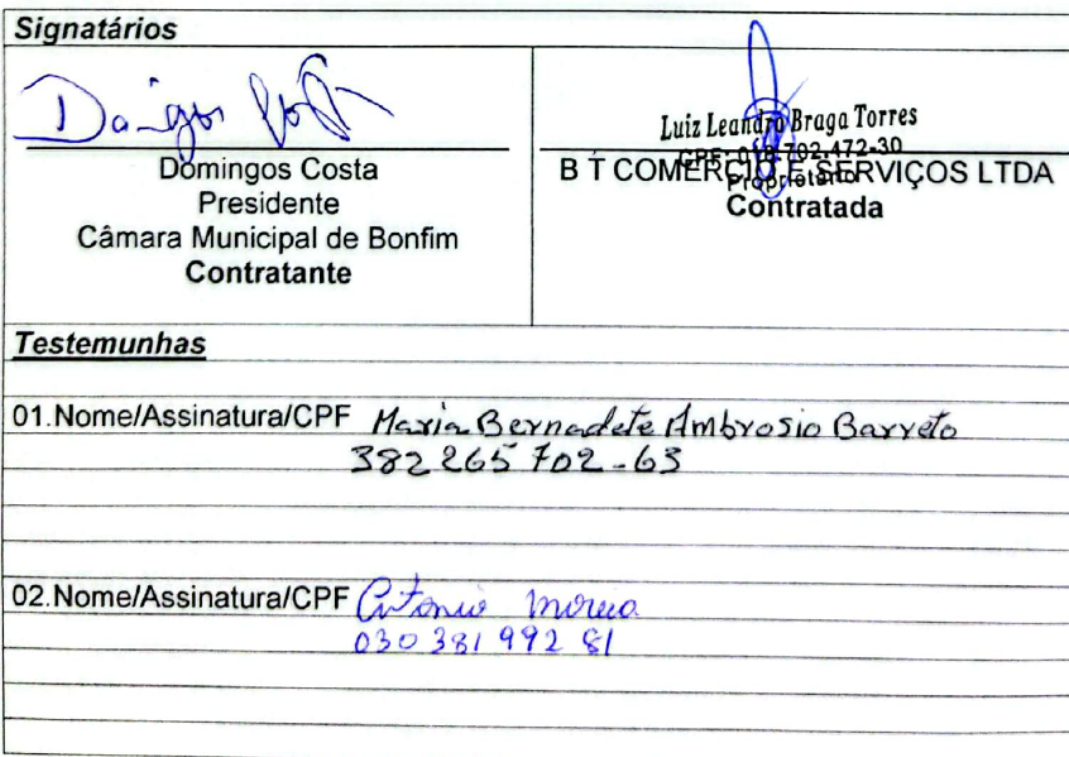 Signatários
Domingos Costa
Presidente
Câmara Municipal de Bonfim
Contratante
Luiz Leandro Braga Torres
CPF: 702.472-30
B T COMERCIO E SERVIÇOS LTDA
Proprietario
Contratada
Testemunhas
01.Nome/Assinatura/CPF Maria Bernadete Ambrosio Barreto
382 265 702-63
02.Nome/Assinatura/CPF Antonio
030 381 992 81